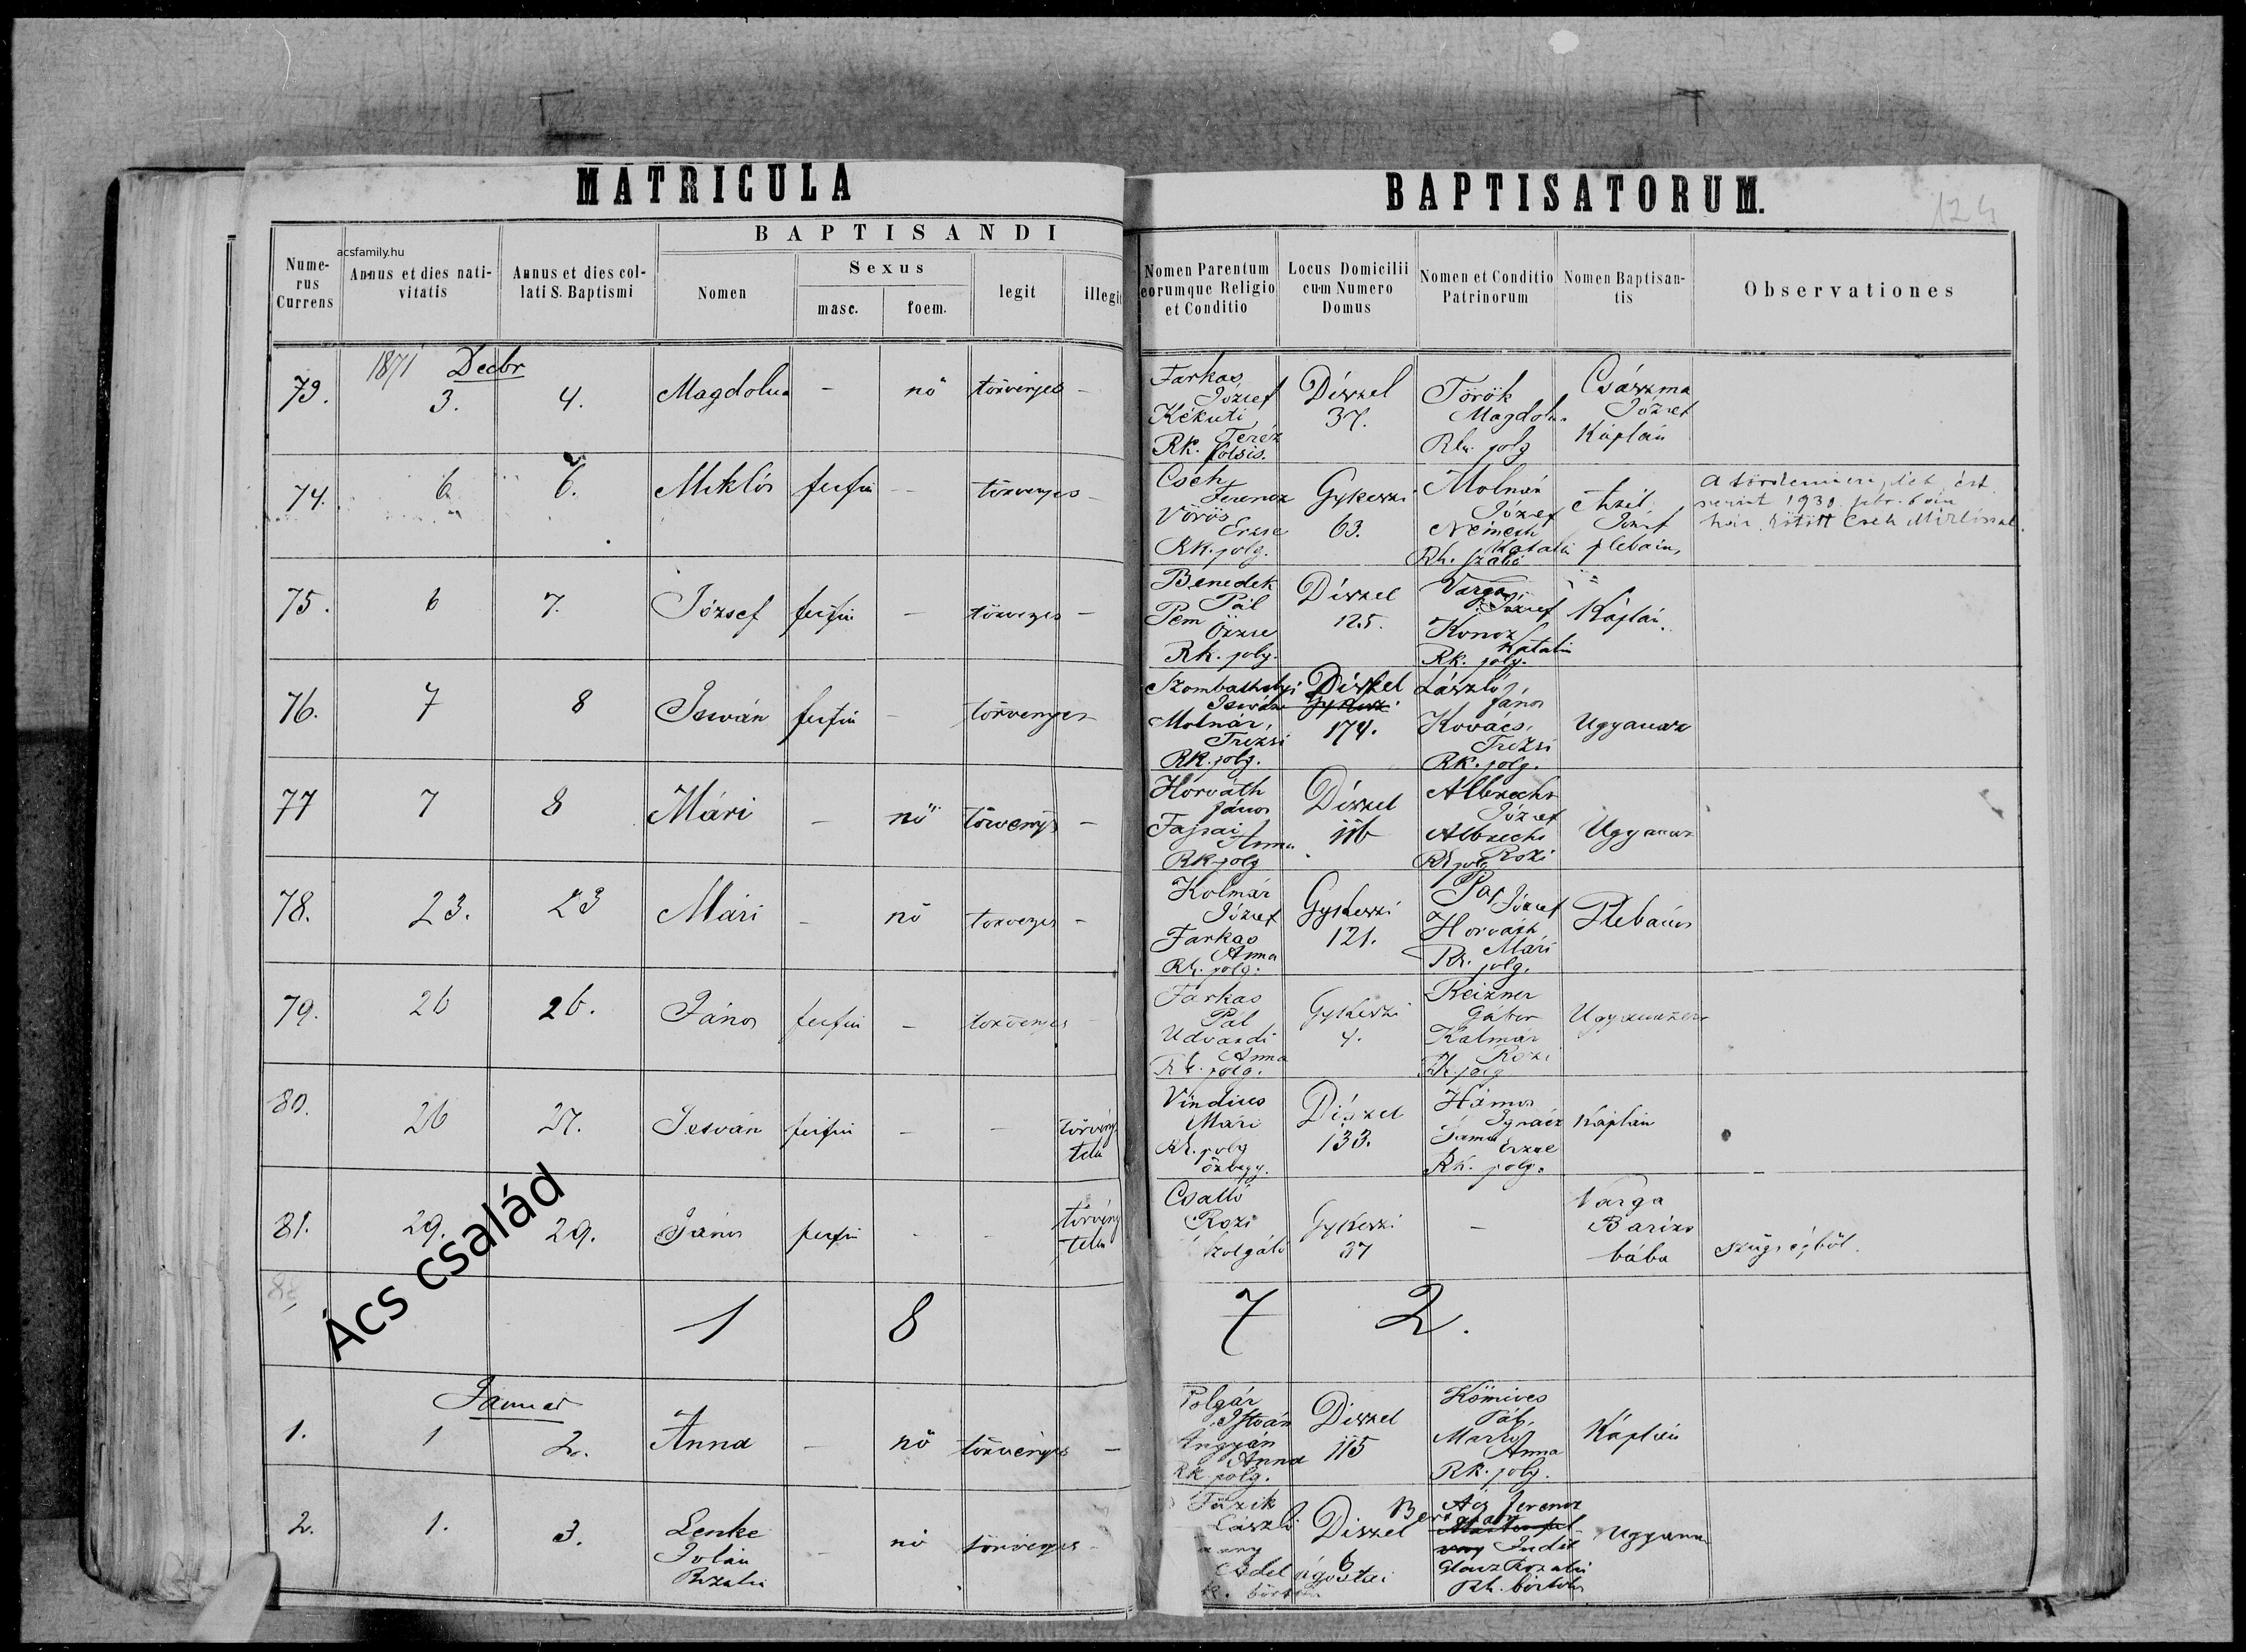 MATRICULA
BAPTISATORUM.
124
acsfamily.hu
BAPTISANDI
Nume-
rus
Currens
Annus et dies nati-
vitatis
Annus et dies col-
lati S. Baptismi
Nomen
Sexus
masc.
foem.
legit
illegit
Nomen Parentum
eorumque Religio
et Conditio
Locus Domicilii
cum Numero
Domus
Nomen et Conditio
Patrinorum
Nomen Baptisan-
tis
Observationes
1871 Decbr
73. 3. 4. Magdolna – nö törvényes –
Farkas
József
Kékuti
Teréz
Rk.
Diszel
37.
Török
Magdolna
Rk. polg
József
Káplán
74. 6 6. Miklós ferfiu – törvenyes –
Cseh
Ferencz
Vörös
Erzse
RK. polg.
Gykeszi
63.
Molnár
József
Németh
Katalin
Rk. szabó
József
plebáin,
75. 6 7. József ferfiu – törvenyes –
Benedek
Pál
Pem
Örzse
Rk. polg.
Diszel
125.
Varga
József
Konoz
Katalin
Rk. polg.
Káplán
76. 7 8 István ferfiu – törvenyes –
Szombathelyi
István
Molnár,
Trézsi
RK. polg.
Diszel
Gykeszi
174.
László,
János
Kovács,
Trézsi
RK. polg.
Ugyanaz
77 7 8 Mári – nö törvenys –
Horváth
János
Fajsai
Anna
RK polg
Diszel
116
Albrecht
József
Albrecht
Rozi
Rk polg
Ugyanaz
78. 23. 23 Mári – nö törvenyes –
Kolmár
József
Farkas
Anna
Rk. polg.
Gykeszi
121.
József
Horváth
Mári
Rk. polg.
Plebános
79. 26 26. János ferfiu – törvenyes
Farkas
Pál
Udvardi
Anna
Rk. polg.
Gykeszi
4.
Reizner
Gábor
Kalmár
Rozi
Rk. polg
80. 26 27. István ferfiu – – törvény
telen
Vindius
Mári
Rk. polg
özvegy.
Diszel
133.
Hámos
Ignácz
Erzse
Rk. polg.
Káplán
81. 29. 29. János ferfiu – – törvény
telen
Csalló
Rozi
szolgáló
Gykeszi
37
–
Varga
bába
Szügségböl.
Ács család
1 8 7 2.
Januar
1. 1 2. Anna – nö törvényes –
Polgár
István
Angyán
Anna
Rk. polg.
Diszel
115
Kömives
Pál,
Markó
Anna
RK. polg.
Káplán
2. 1. 3. Lenke
Jolán
Rozalia
– nö törvenyes –
László
Adel
Diszel
6
Ács Ferencz
Judit
Glasz Rozalia